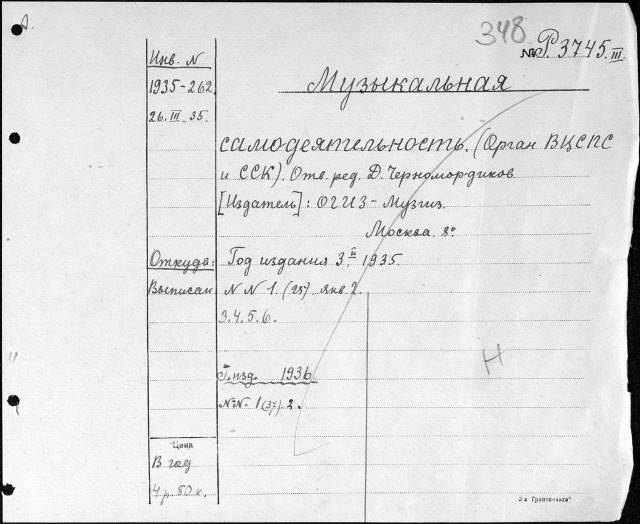 348
№ Р. 3745. III.
Инв. N
1935-262
26. III 35.
Музыкальная
самодеятельность. (Орган ВЦСПС
и ССК). Отв. ред. Д. Черномордиков.
[Издатель]: ОГИЗ-Музгиз.
Москва. 8°
Откуда:
Выписан
Год издания 3й 1935.
NN 1. (25) янв. 2.
3. 4. 5. 6.
Г. изд. 1936.
N.N. 1 (37). 2.
Н
Цена
В год
4 р. 50 к.
3-я Транспечать